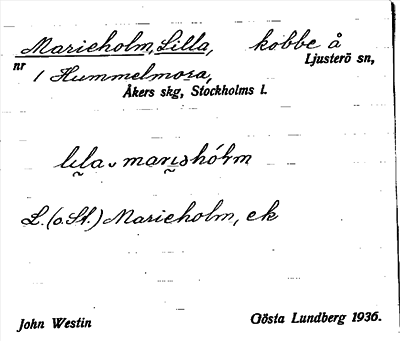 Marieholm, Lilla, kobbe å
nr 1 Hummelmora, Ljusterö sn,
Åkers skg, Stockholms l.
lila marishólm
L. (o. St.) Marieholm, ek
John Westin Gösta Lundberg 1936.